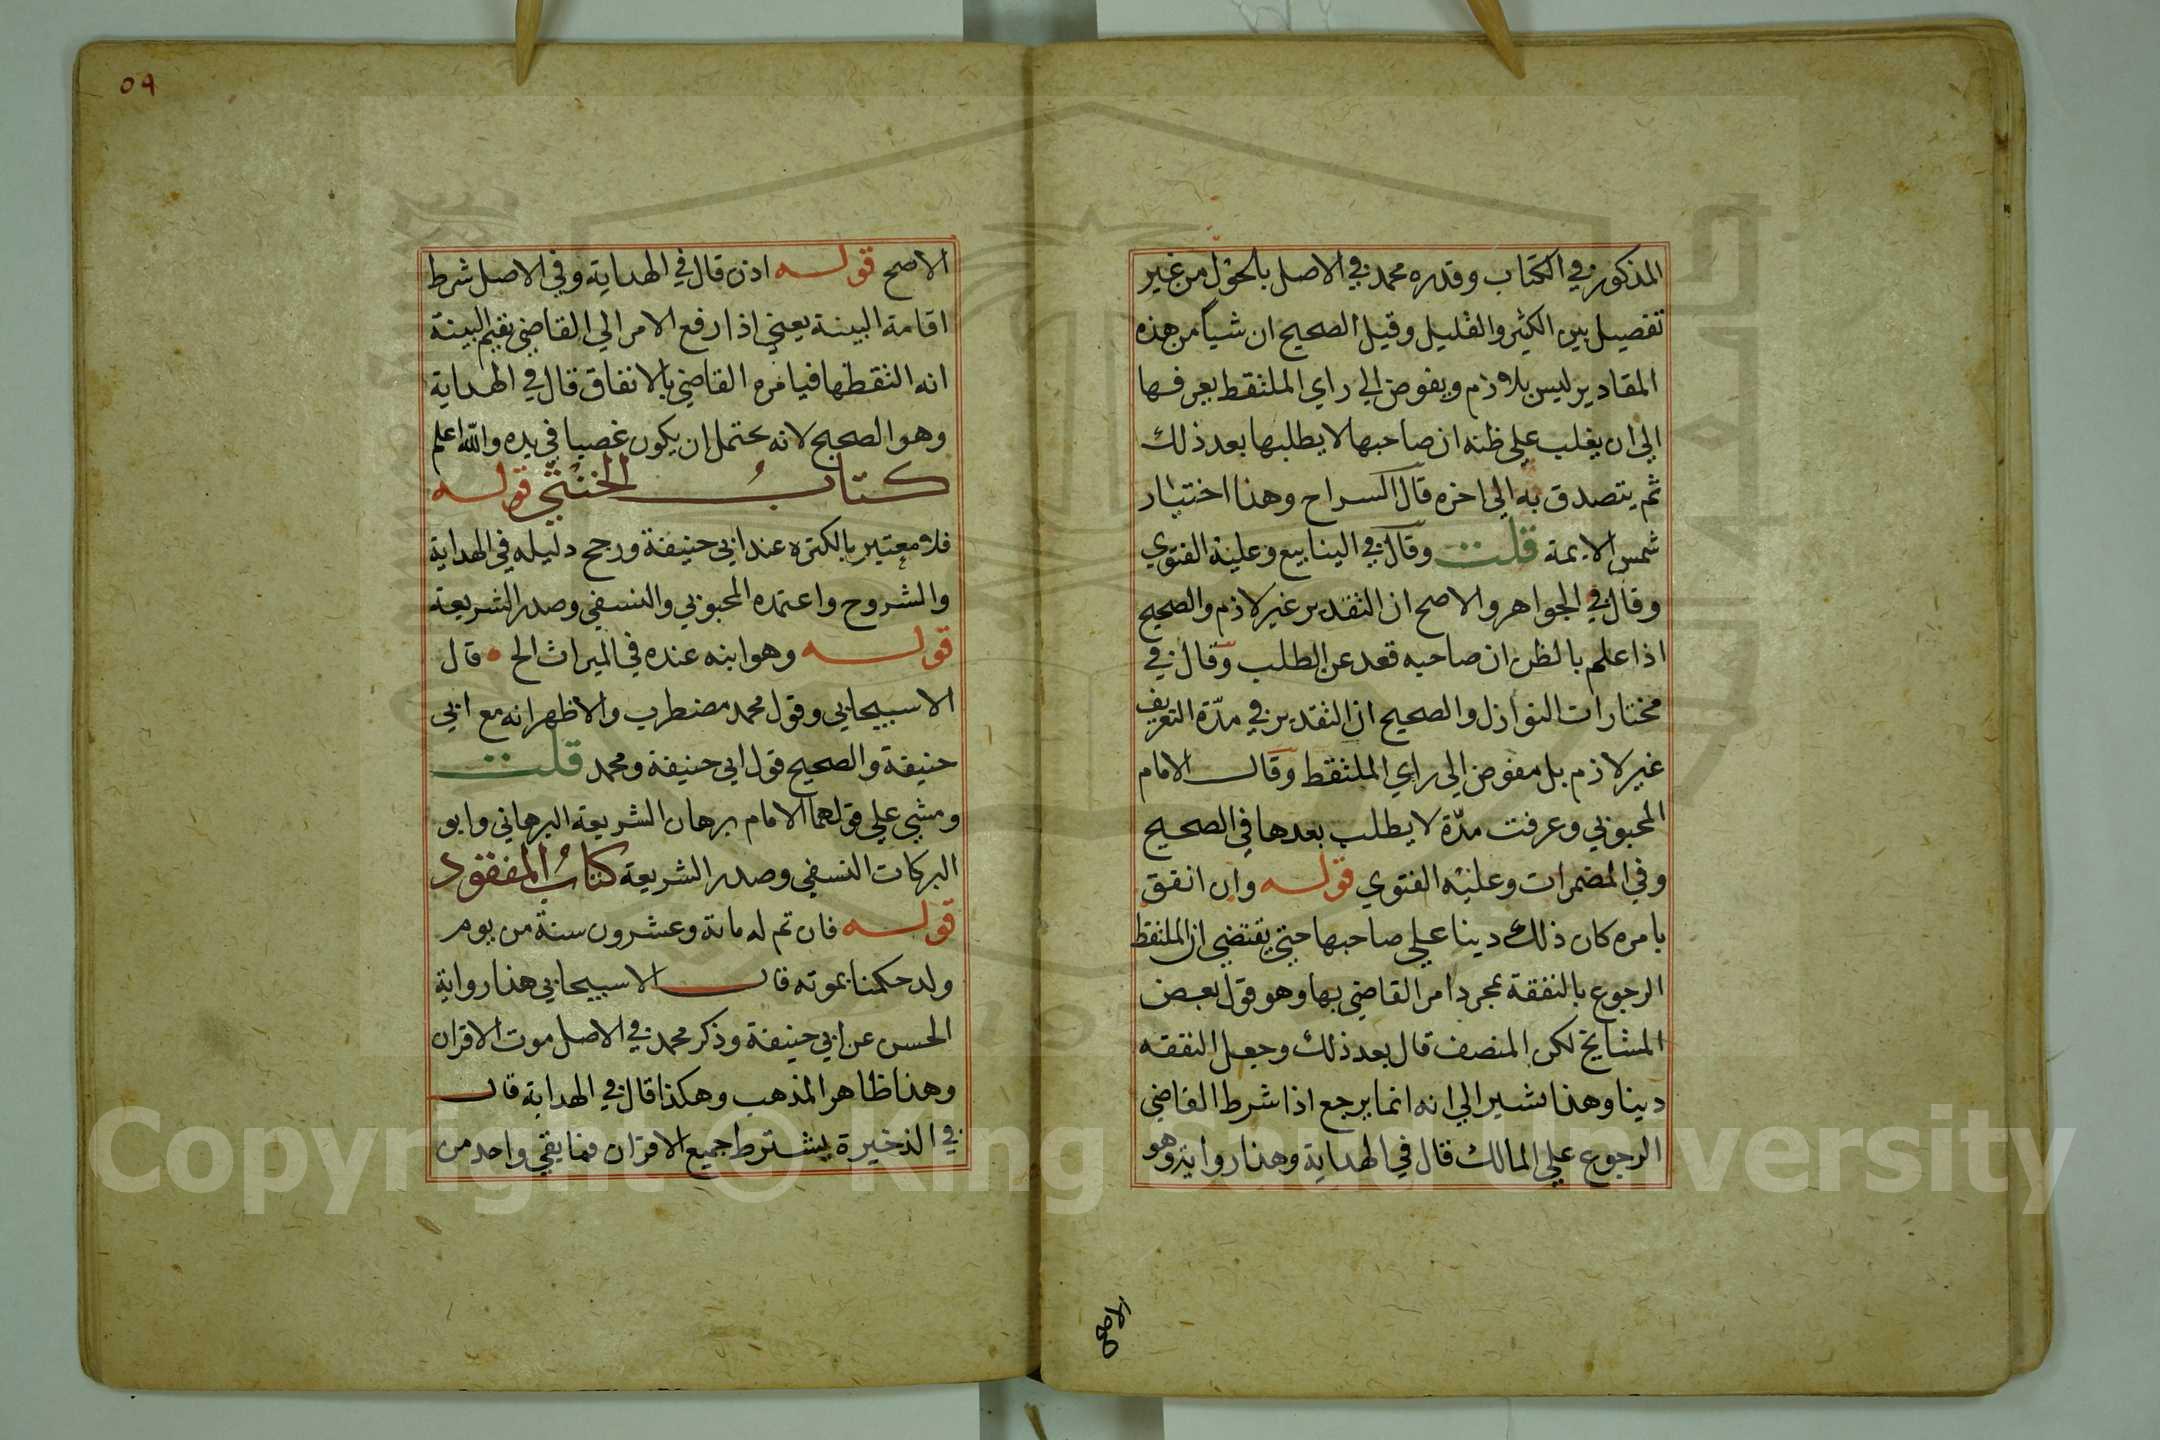 المذكور في الكتاب وقدره محمد في الاصل بالحول من غير
تفصيل بين الكثير والقليل وقيل الصحيح ان شيأ من هذه
المقادير ليس بلازم ويفوض الي راي الملتقط يعرفها
الي ان يغلب علي ظنه ان صاحبها لا يطلبها بعد ذلك
ثم يتصدق به الي اخره قال السراح وهذا اختيار
شمس الايمة قلت وقال في الينابيع وعلية الفتوي
وقال في الجواهر والاصح ان التقدير غير لازم والصحيح
اذا علم بالظن ان صاحبه قعد عن الطلب وقال في
مختارات النوازل والصحيح ان التقدير في مدّة التعريف
غير لازم بل مفوض الي راي الملتقط وقال الامام
المحبوبي وعرفت مدّة لا يطلب بعدها في الصحيح
وفي المضمرات وعليه الفتوي قوله وان انفق
بامره كان ذلك دينا علي صاحبها حتي يقتضي ان الملتقط
الرجوع بالنفقة بمجرد امر القاضي بها وهو قول بعض
المشايخ لكن المنصف قال بعد ذلك وجعل النفقه
دينا وهذا يشير الي انه انما يرجع اذا شرط القاضي
الرجوع علي المالك قال في الهداية وهذا رواية وهو
الاصح
٥٩
الاصح قوله اذن قال في الهداية وفي الاصل شرط
اقامة البينة يعني اذا رفع الامر الي القاضي يقيم البينة
انه التقطها فيامره القاضي بالانفاق قال في الهداية
وهو الصحيح لانه يحتمل ان يكون غصبا في يده والله اعلم
كتاب الخنثي قوله
فلا معتبر بالكثره عند ابي حنيفة ورجح دليله في الهداية
والشروح واعتمده المحبوبي والنسفي وصدر الشريعة
قوله وهو ابنه عنده في الميراث الخ ه قال
الاسبيجابي وقول محمد مضطرب والاظهر انه مع ابي
حنيفة والصحيح قول ابي حنيفة ومحمد قلت
ومشي علي قولهما الامام برهان الشريعة البرهاني وابو
البركات النسفي وصدر الشريعة كتاب المفقود
قوله فان تم له مائة وعشرون سنة من يوم
ولد حكمنا بموته قال الاسبيجابي هذا رواية
الحسن عن ابي حنيفة وذكر محمد في الاصل موت الاقران
وهذا ظاهر المذهب وهكذا قال في الهداية قال
في الذخيرة يشترط جميع الاقران فما بقي واحد من
Copyright © King Saud University